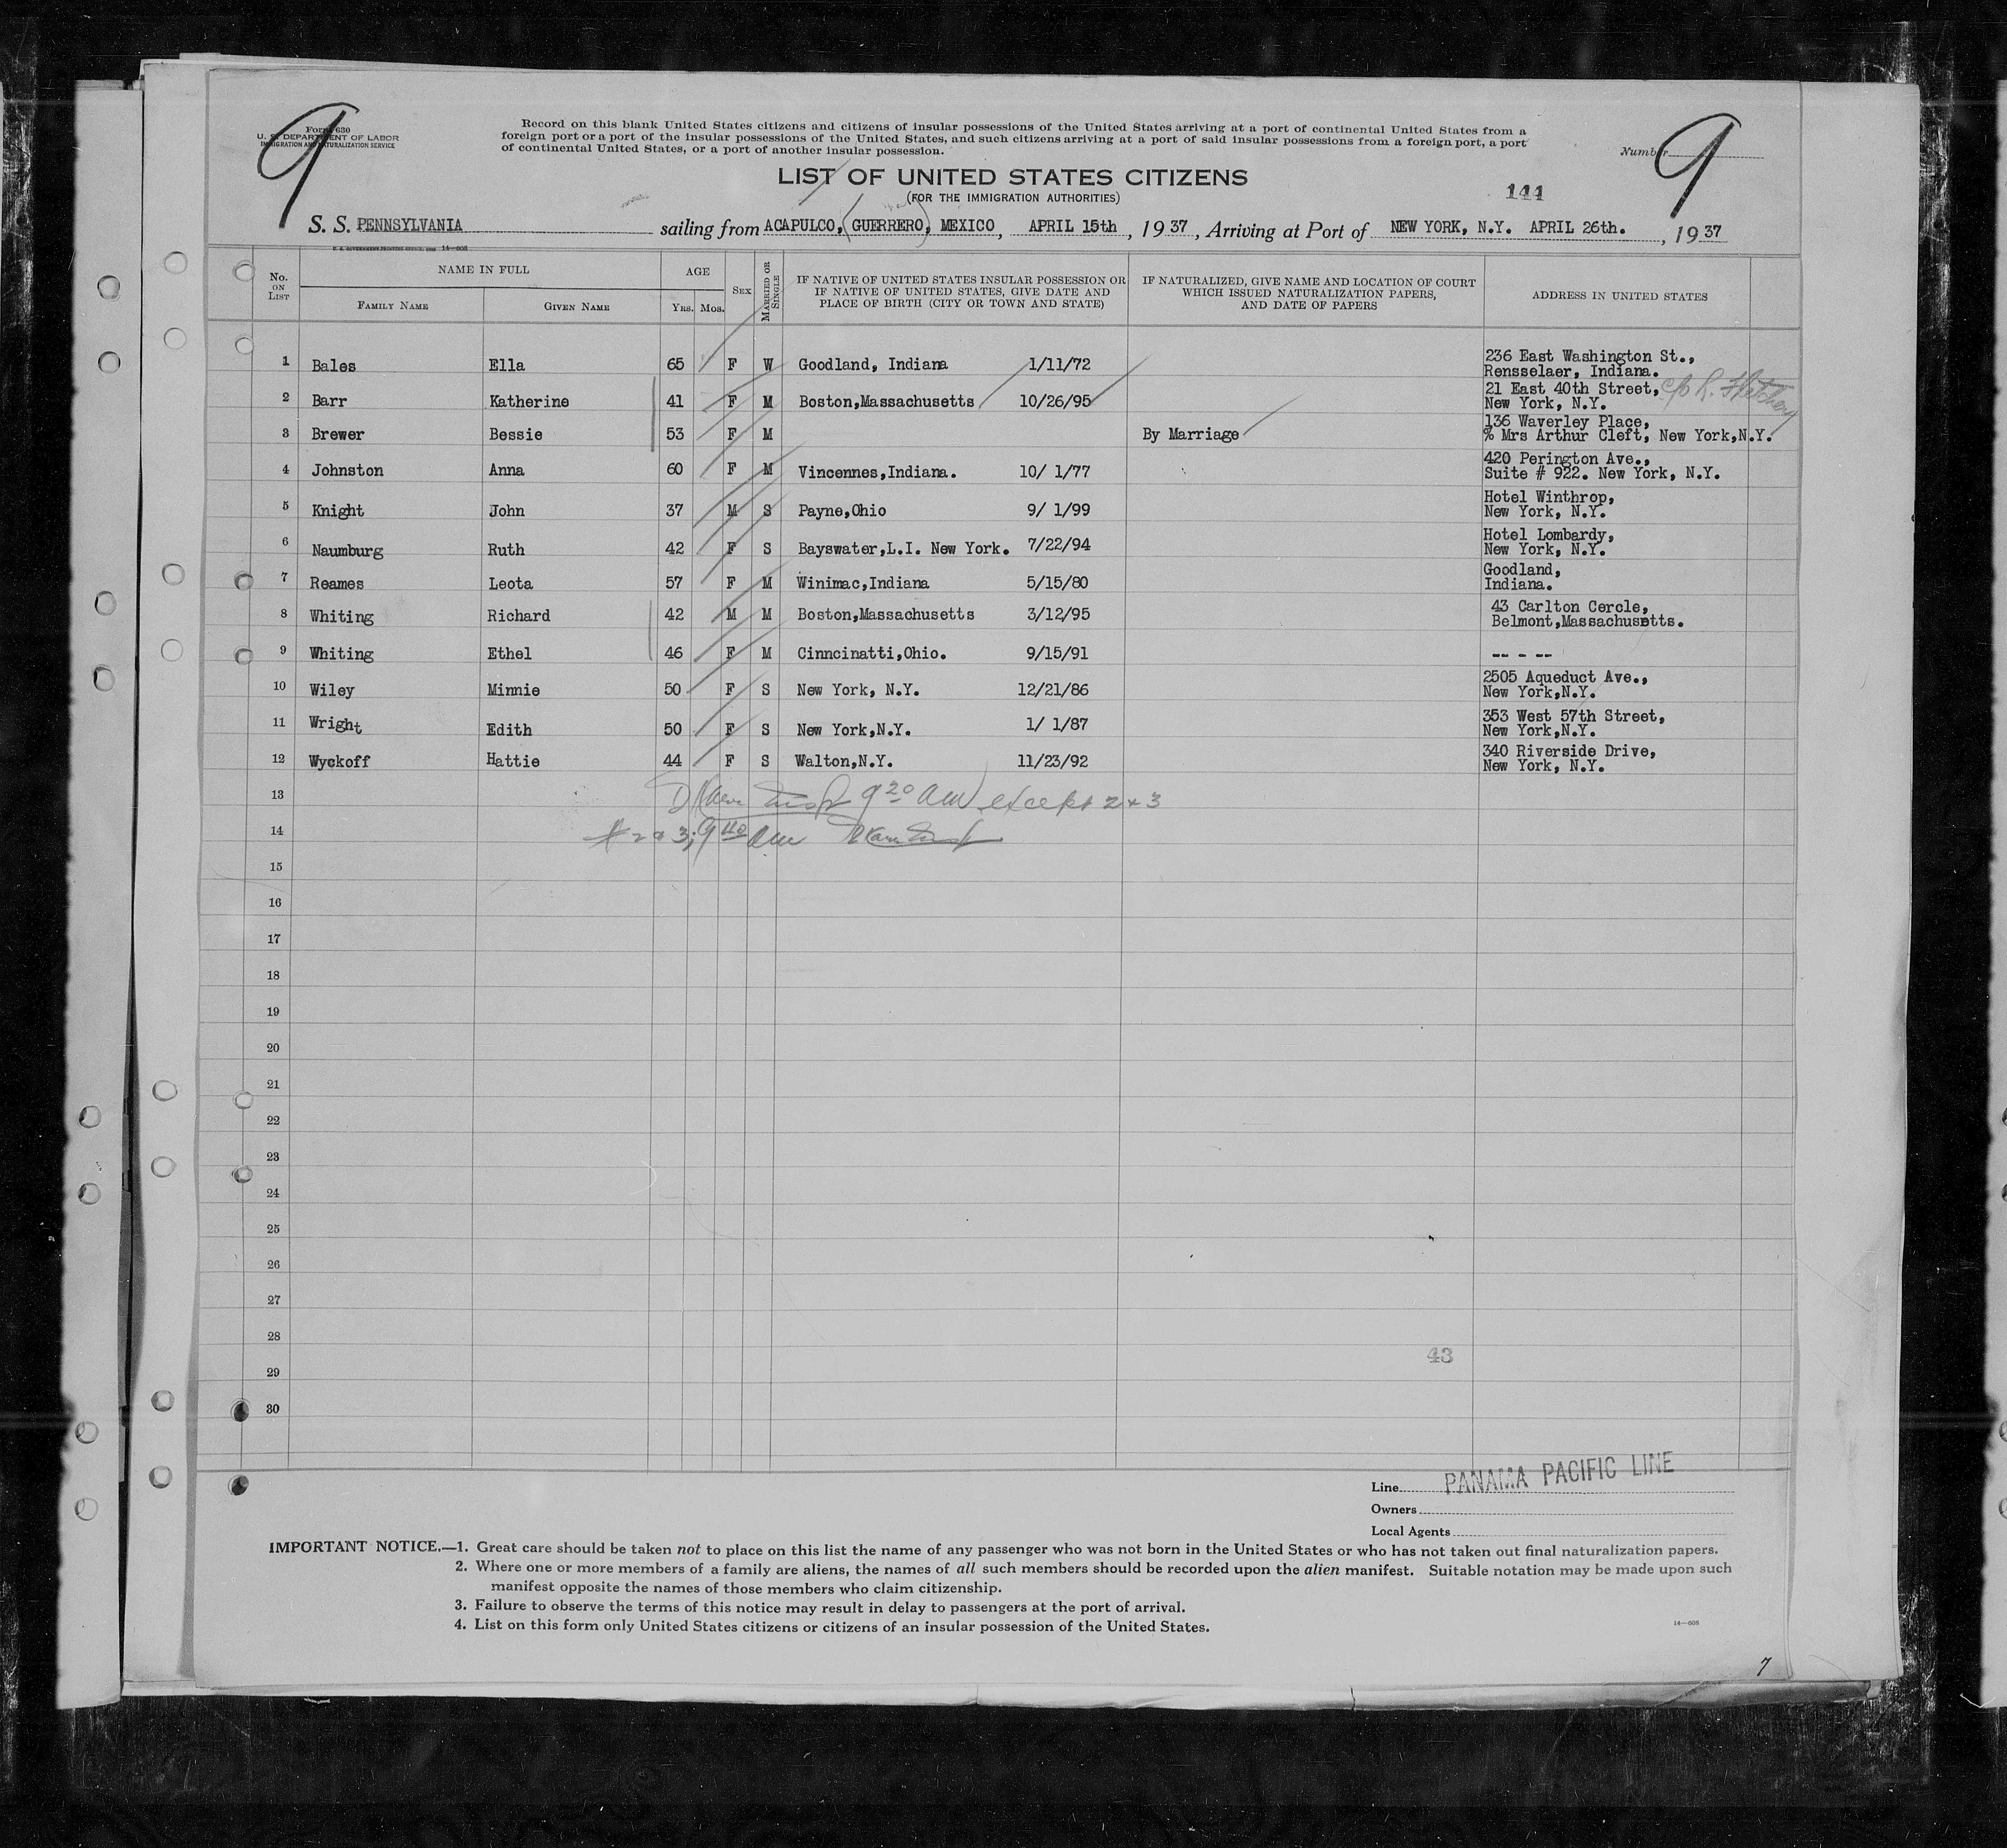 9
Form 630
U. S. DEPARTMENT OF LABOR
IMMIGRATION AND NATURALIZATION SERVICE
Record on this blank United States citizens and citizens of insular possessions of the United States arriving at a port of continental United States from a
foreign port or a port of the insular possessions of the United States, and such citizens arriving at a port of said insular possessions from a foreign port, a port
of continental United States, or a port of another insular possession.
Number 9
LIST OF UNITED STATES CITIZENS
(FOR THE IMMIGRATION AUTHORITIES)
144
S. S. PENNSYLVANIA sailing from ACAPULCO, (GUERRERO), MEXICO, APRIL 15th, 1937, Arriving at Port of NEW YORK, N.Y. APRIL 26th., 1937
U. S. GOVERNMENT PRINTING OFFICE 14—608
No. ON LIST
NAME IN FULL
FAMILY NAME
GIVEN NAME
AGE
YRS. MOS.
SEX
MARRIED OR SINGLE
IF NATIVE OF UNITED STATES INSULAR POSSESSION OR
IF NATIVE OF UNITED STATES, GIVE DATE AND
PLACE OF BIRTH (CITY OR TOWN AND STATE)
IF NATURALIZED, GIVE NAME AND LOCATION OF COURT
WHICH ISSUED NATURALIZATION PAPERS,
AND DATE OF PAPERS
ADDRESS IN UNITED STATES
1 Bales Ella 65 F W Goodland, Indiana 1/11/72 236 East Washington St.,
Rensselaer, Indiana.
2 Barr Katherine 41 F M Boston,Massachusetts 10/26/95 21 East 40th Street, c/o R. Fletcher
New York, N.Y.
3 Brewer Bessie 53 F M By Marriage 136 Waverley Place,
% Mrs Arthur Cleft, New York,N.Y.
4 Johnston Anna 60 F M Vincennes,Indiana. 10/ 1/77 420 Perington Ave.,
Suite # 922. New York, N.Y.
5 Knight John 37 M S Payne,Ohio 9/ 1/99 Hotel Winthrop,
New York, N.Y.
6 Naumburg Ruth 42 F S Bayswater,L.I. New York. 7/22/94 Hotel Lombardy,
New York, N.Y.
7 Reames Leota 57 F M Winimac,Indiana 5/15/80 Goodland,
Indiana.
8 Whiting Richard 42 M M Boston,Massachusetts 3/12/95 43 Carlton Cercle,
Belmont,Massachusetts.
9 Whiting Ethel 46 F M Cinncinatti,Ohio. 9/15/91 -- - --
10 Wiley Minnie 50 F S New York, N.Y. 12/21/86 2505 Aqueduct Ave.,
New York,N.Y.
11 Wright Edith 50 F S New York,N.Y. 1/ 1/87 353 West 57th Street,
New York,N.Y.
12 Wyckoff Hattie 44 F S Walton,N.Y. 11/23/92 340 Riverside Drive,
New York, N.Y.
13 9 20 AM except 2 + 3
14 # 2 & 3; 9 40 AM
15
16
17
18
19
20
21
22
23
24
25
26
27
28
43
29
30
Line PANAMA PACIFIC LINE
Owners
Local Agents
IMPORTANT NOTICE.—1. Great care should be taken not to place on this list the name of any passenger who was not born in the United States or who has not taken out final naturalization papers.
2. Where one or more members of a family are aliens, the names of all such members should be recorded upon the alien manifest. Suitable notation may be made upon such
manifest opposite the names of those members who claim citizenship.
3. Failure to observe the terms of this notice may result in delay to passengers at the port of arrival.
4. List on this form only United States citizens or citizens of an insular possession of the United States.
14—608
7